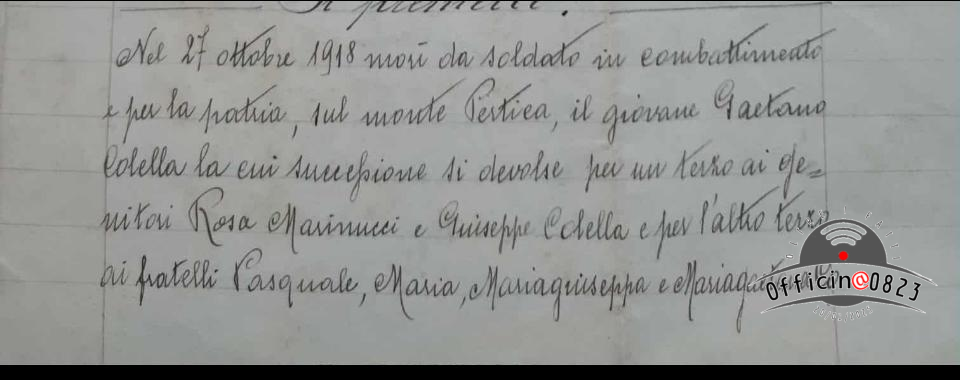 Si premette:
Nel 27 ottobre 1918 morì da soldato in combattimento
e per la patria, sul monte Pertica, il giovane Gaetano
Colella la cui successione si devolse per un terzo ai ge=
nitori Rosa Marinucci e Giuseppe Colella e per l'altro terzo
ai fratelli Pasquale, Maria, Mariagiuseppa e
Officin@0823